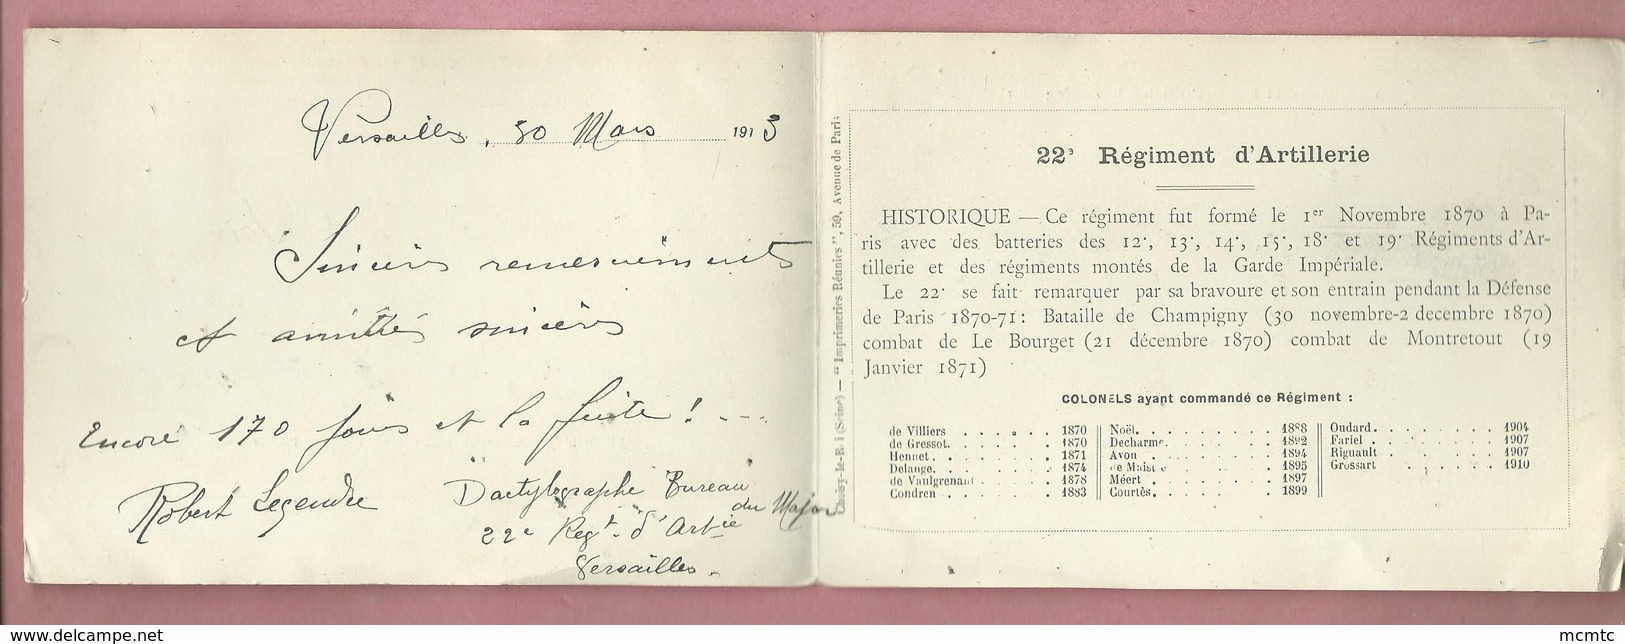 Versailles, 30 Mars 1913
Sincères remerciements
et amitiés sincères
Encore 170 jours et la fuite! ---
Robert Legendre
Dactylographe Bureau
du Major
22e Regt. d'Artie
Versailles.
Choisy-le-R i (Seine) — "Imprimeries Réunies", 59, Avenue de Paris
22e Régiment d'Artillerie
HISTORIQUE — Ce régiment fut formé le 1er Novembre 1870 à Pa-
ris avec des batteries des 12e, 13e, 14e, 15e, 18e et 19e Régiments d'Ar-
tillerie et des régiments montés de la Garde Impériale.
Le 22e se fait remarquer par sa bravoure et son entrain pendant la Défense
de Paris 1870-71: Bataille de Champigny (30 novembre-2 decembre 1870)
combat de Le Bourget (21 décembre 1870) combat de Montretout (19
Janvier 1871)
COLONELS ayant commandé ce Régiment :
de Villiers . . . . 1870
de Gressot. . . . . 1870
Hennet. . . . . . 1871
Delange. . . . . . 1874
de Vaulgrenant . . . . 1878
Condren . . . . . . 1883
Noël. . . . . . . . 1888
Decharme. . . . . . . 1892
Avon . . . . . . . 1894
de Maist e . . . . . 1895
Méert . . . . . . . 1897
Courtès. . . . . . . 1899
Oudard. . . . . . . 1904
Fariel . . . . . . . 1907
Riguault . . . . . . 1907
Grossart . . . . . 1910
www.delcampe.net
mcmtc